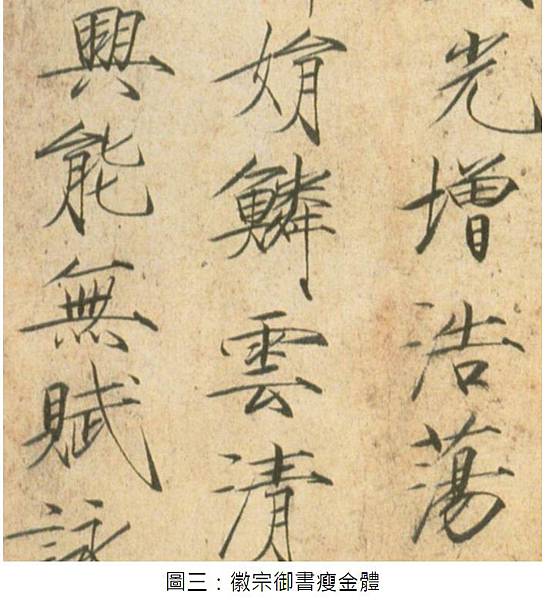 光增浩蕩
娟鱗雲清
興能無賦詠
圖三：徽宗御書瘦金體